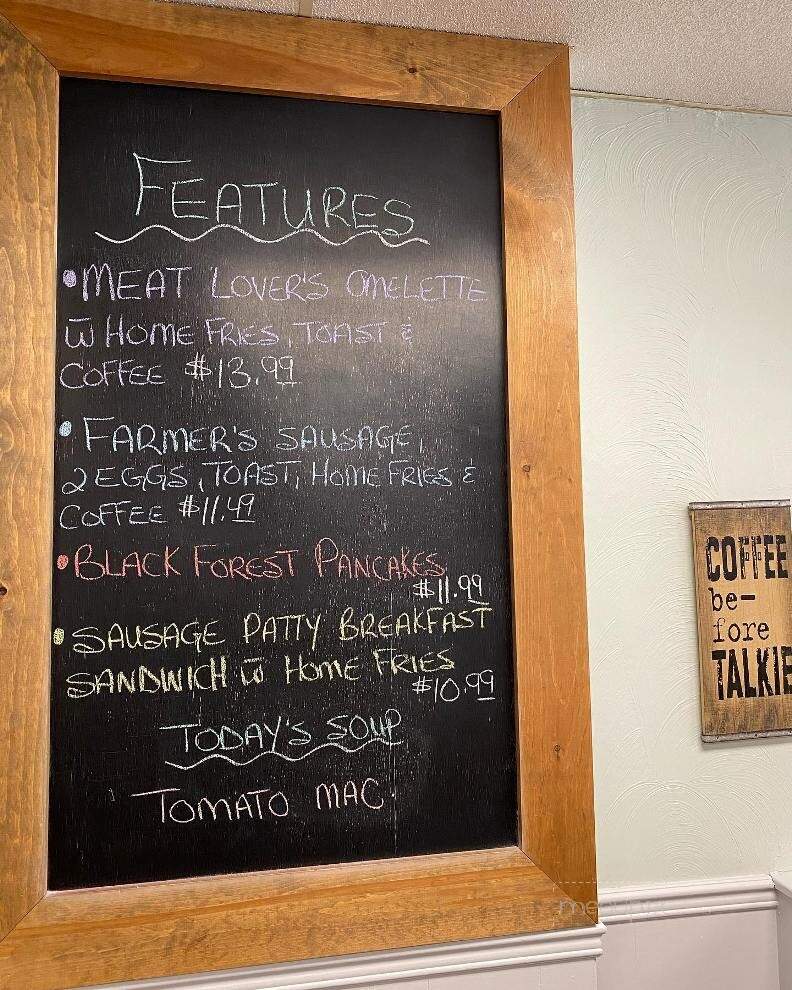 FEATURES
•MEAT LOVER'S OMELETTE
w̅ HOME FRIES, TOAST &
COFFEE $13.99
•FARMER'S SAUSAGE,
2 EGGS, TOAST, HOME FRIES &
COFFEE $11.49
•BLACK FOREST PANCAKES
$11.99
•SAUSAGE PATTY BREAKFAST
SANDWICH w̅ HOME FRIES
$10.99
TODAY'S SOUP
TOMATO MAC
COFFEE
be-
fore
TALKIE